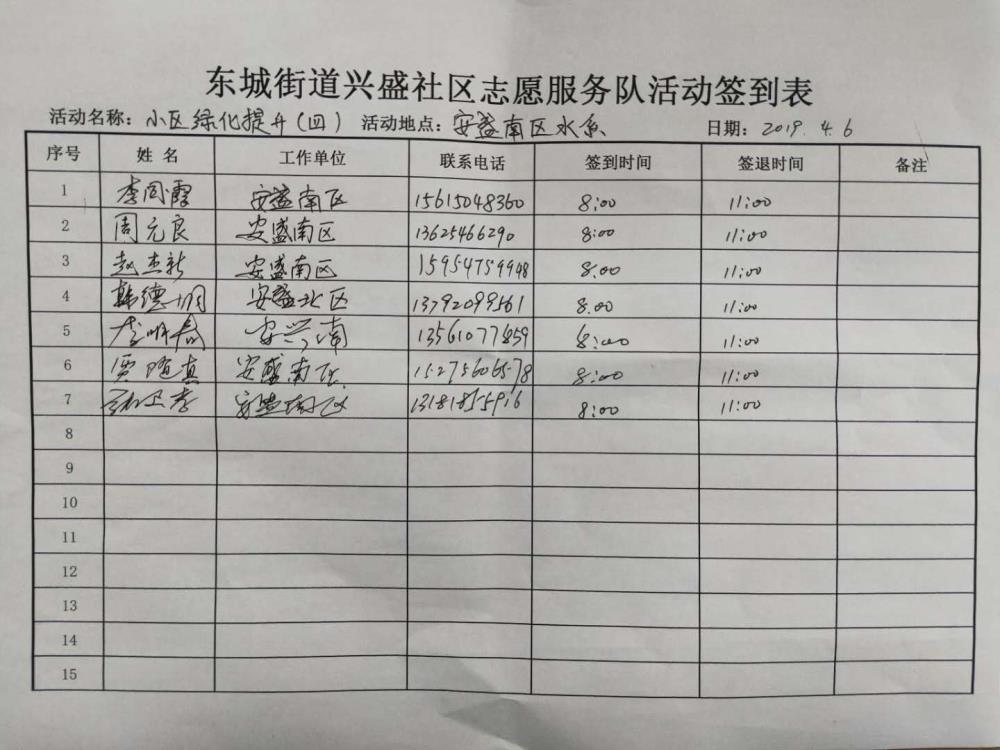 东城街道兴盛社区志愿服务队活动签到表
活动名称：小区绿化提升（四） 活动地点：安盛南区水系 日期：2019.4.6
序号 姓名 工作单位 联系电话 签到时间 签退时间 备注
1 李国霞 安盛南区 15615048360 8:00 11:00
2 周元良 安盛南区 13625466290 8:00 11:00
3 赵杰新 安盛南区 15954759948 8:00 11:00
4 韩德 安盛北区 13792099561 8:00 11:00
5 李 安兴南 13561077859 8:00 11:00
6 贾随真 安盛南区 15275606578 8:00 11:00
7 安盛南区 8:00 11:00
8
9
10
11
12
13
14
15